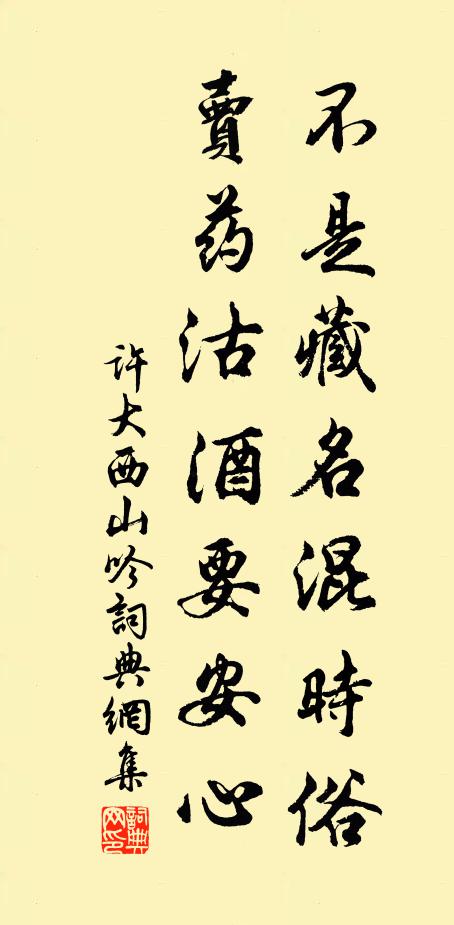 不是藏名混時俗
賣药沽酒要安心
许大西山吟詞典網集
詞典网印